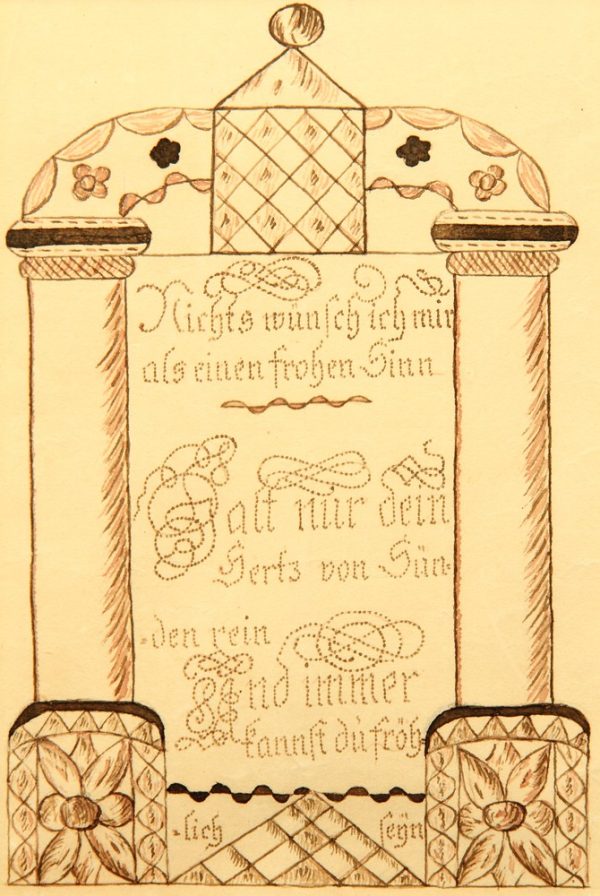 Nichts wünsch ich mir
als einen frohen Sinn
Halt nur dein
Hertz von Sün-
-den rein
Und immer
kannst dü fröh-
-lich seÿn